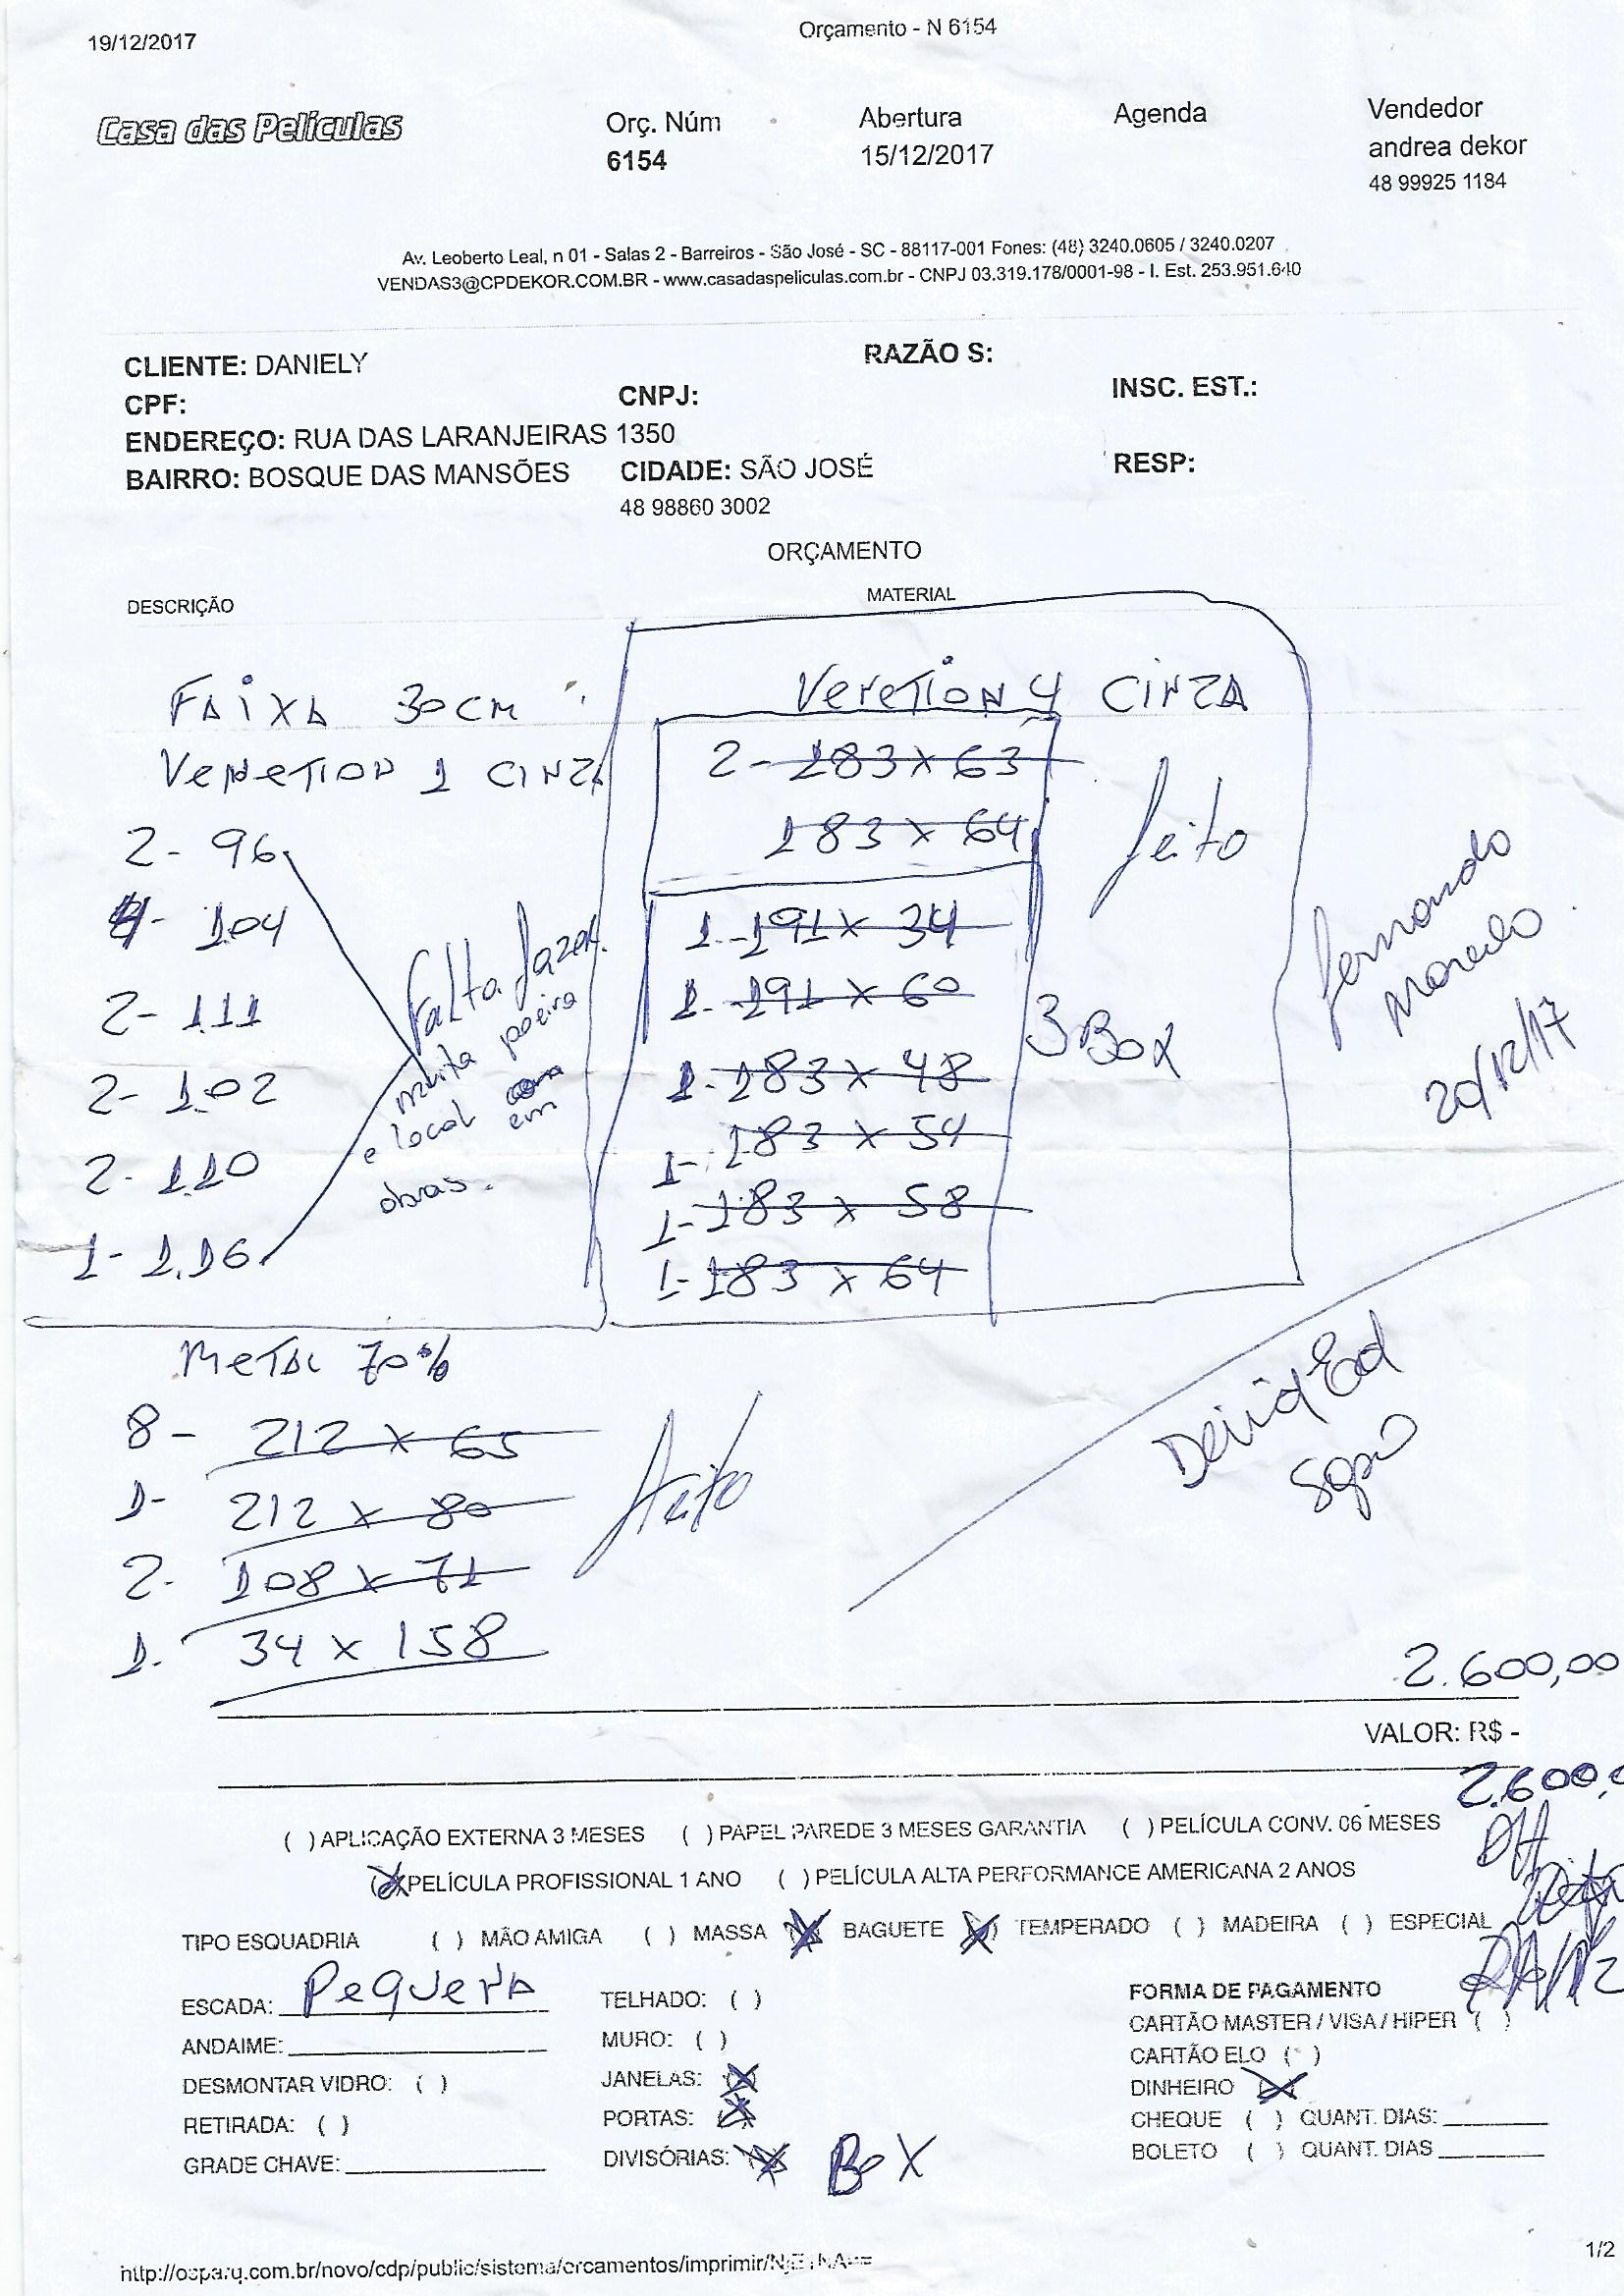 19/12/2017
Orçamento - N 6154
Casa das Películas
Orç. Núm
6154
Abertura
15/12/2017
Agenda
Vendedor
andrea dekor
48 99925 1184
Av. Leoberto Leal, n 01 - Salas 2 - Barreiros - São José - SC - 88117-001 Fones: (48) 3240.0605 / 3240.0207
VENDAS3@CPDEKOR.COM.BR - www.casadaspeliculas.com.br - CNPJ 03.319.178/0001-98 - I. Est. 253.951.640
CLIENTE: DANIELY
RAZÃO S:
CPF:
CNPJ:
INSC. EST.:
ENDEREÇO: RUA DAS LARANJEIRAS 1350
BAIRRO: BOSQUE DAS MANSÕES
CIDADE: SÃO JOSÉ
RESP:
48 98860 3002
ORÇAMENTO
DESCRIÇÃO
MATERIAL
FAIXA 30CM
VENETION 1 CINZA
2- 96
4- 104
2- 111
2- 1.02
2- 1.10
1- 1.16
Falta fazer
muita poeira
e local
em
obras.
VENETION 4 CINZA
2- 183 x 63
183 x 64
feito
1- 191 x 34
1- 191 x 60
1- 183 x 48
1- 183 x 54
1- 183 x 58
1- 183 x 64
3 Box
fernando
20/12/17
METAL 70%
8- 212 x 65
1- 212 x 80
2- 108 x 71
1- 34 x 158
feito
2.600,00
VALOR: R$ -
2.600,
( ) APLICAÇÃO EXTERNA 3 MESES ( ) PAPEL PAREDE 3 MESES GARANTIA ( ) PELÍCULA CONV. 06 MESES
(X) PELÍCULA PROFISSIONAL 1 ANO ( ) PELÍCULA ALTA PERFORMANCE AMERICANA 2 ANOS
TIPO ESQUADRIA ( ) MÃO AMIGA ( ) MASSA (X) BAGUETE (X) TEMPERADO ( ) MADEIRA ( ) ESPECIAL
ESCADA: PEQUENA
ANDAIME:
DESMONTAR VIDRO: ( )
RETIRADA: ( )
GRADE CHAVE:
TELHADO: ( )
MURO: ( )
JANELAS: (X)
PORTAS: (X)
DIVISÓRIAS: (X) BOX
FORMA DE PAGAMENTO
CARTÃO MASTER / VISA / HIPER ( )
CARTÃO ELO ( )
DINHEIRO (X)
CHEQUE ( ) QUANT. DIAS:
BOLETO ( ) QUANT. DIAS
1/2